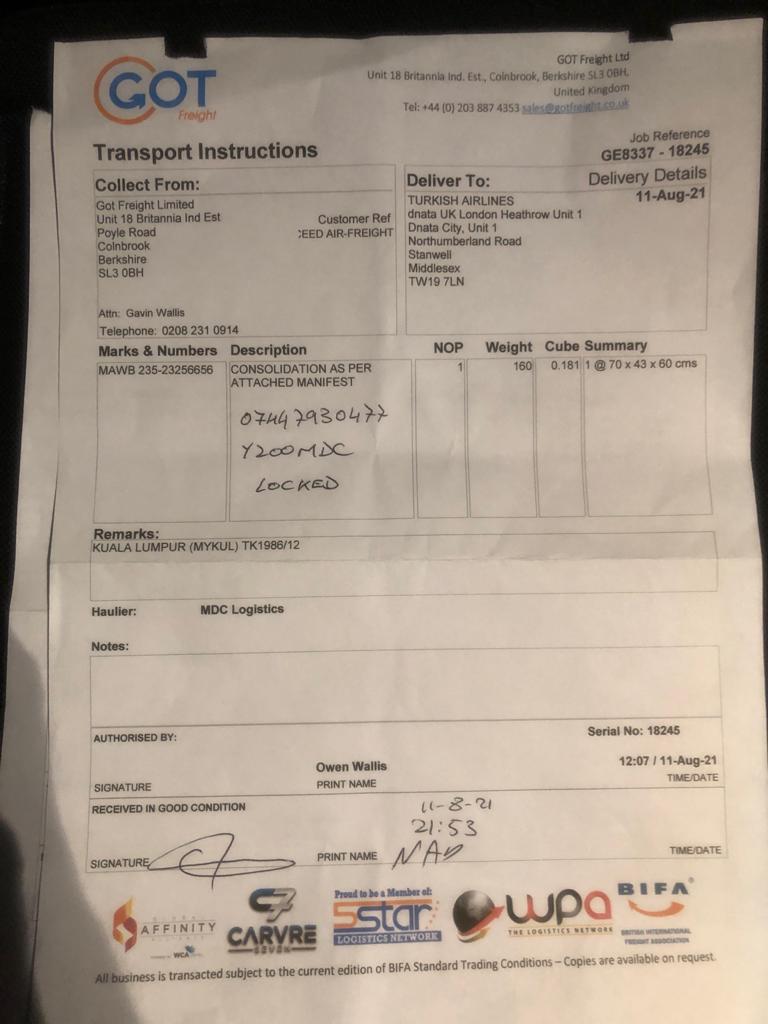 GOT
Freight
GOT Freight Ltd
Unit 18 Britannia Ind. Est., Colnbrook, Berkshire SL3 0BH,
United Kingdom
Tel: +44 (0) 203 887 4353 sales@gotfreight.co.uk
Transport Instructions
Job Reference
GE8337 - 18245
Collect From:
Got Freight Limited
Unit 18 Britannia Ind Est
Poyle Road
Colnbrook
Berkshire
SL3 0BH
Customer Ref
EED AIR-FREIGHT
Attn: Gavin Wallis
Telephone: 0208 231 0914
Deliver To:
Delivery Details
11-Aug-21
TURKISH AIRLINES
dnata UK London Heathrow Unit 1
Dnata City, Unit 1
Northumberland Road
Stanwell
Middlesex
TW19 7LN
Marks & Numbers Description NOP Weight Cube Summary
MAWB 235-23256656 CONSOLIDATION AS PER 1 160 0.181 1 @ 70 x 43 x 60 cms
ATTACHED MANIFEST
07447930477
Y200MDC
LOCKED
Remarks:
KUALA LUMPUR (MYKUL) TK1986/12
Haulier: MDC Logistics
Notes:
AUTHORISED BY:
Serial No: 18245
Owen Wallis 12:07 / 11-Aug-21
SIGNATURE PRINT NAME TIME/DATE
RECEIVED IN GOOD CONDITION
11-8-21
21:53
SIGNATURE PRINT NAME TIME/DATE
AFFINITY
WCA
C7
CARVRE
SEVEN
Proud to be a Member of:
5star
LOGISTICS NETWORK
wpa
THE LOGISTICS NETWORK
BIFA
BRITISH INTERNATIONAL
FREIGHT ASSOCIATION
All business is transacted subject to the current edition of BIFA Standard Trading Conditions – Copies are available on request.